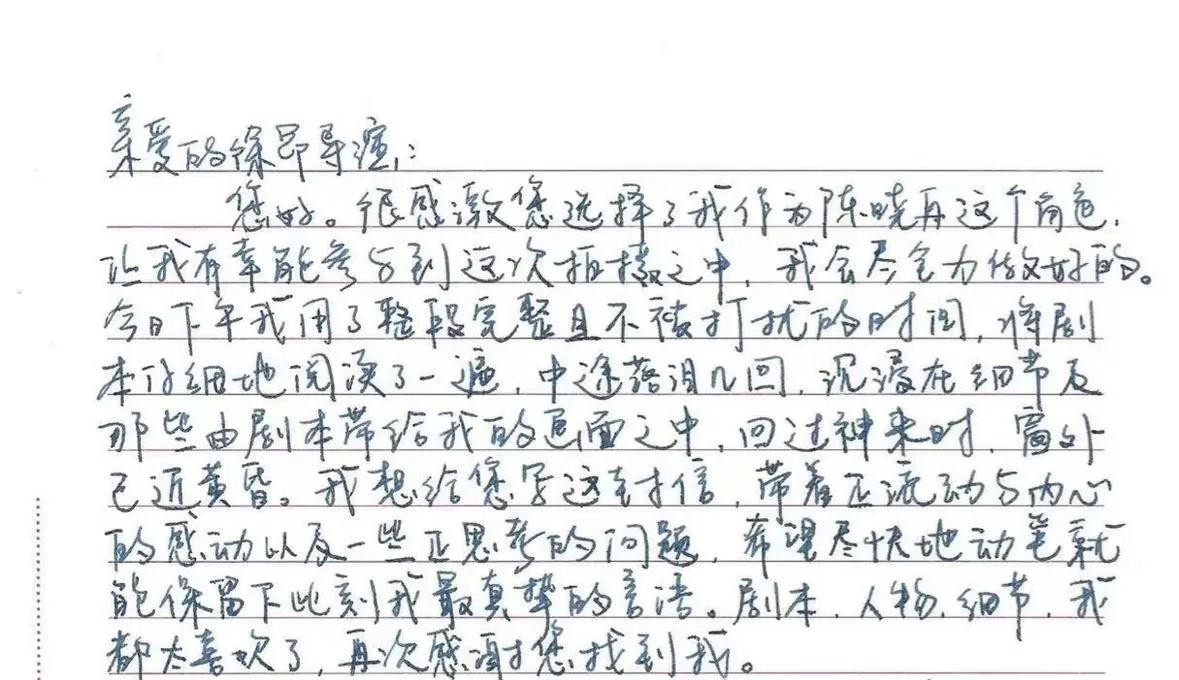 亲爱的保昂导演：
您好。很感激您选择了我作为陈晓再这个角色，
让我有幸能参与到这次拍摄之中，我会尽全力做好的。
今日下午我用了整段完整且不被打扰的时间，将剧
本仔细地阅读了一遍，中途落泪几回，沉浸在细节及
那些由剧本带给我的画面之中，回过神来时，窗外
已近黄昏。我想给您写这封信，带着正流动与内心
的感动以及一些正思考的问题，希望尽快地动笔就
能保留下此刻我最真挚的言语。剧本，人物，细节，我
都太喜欢了，再次感谢您找到我。